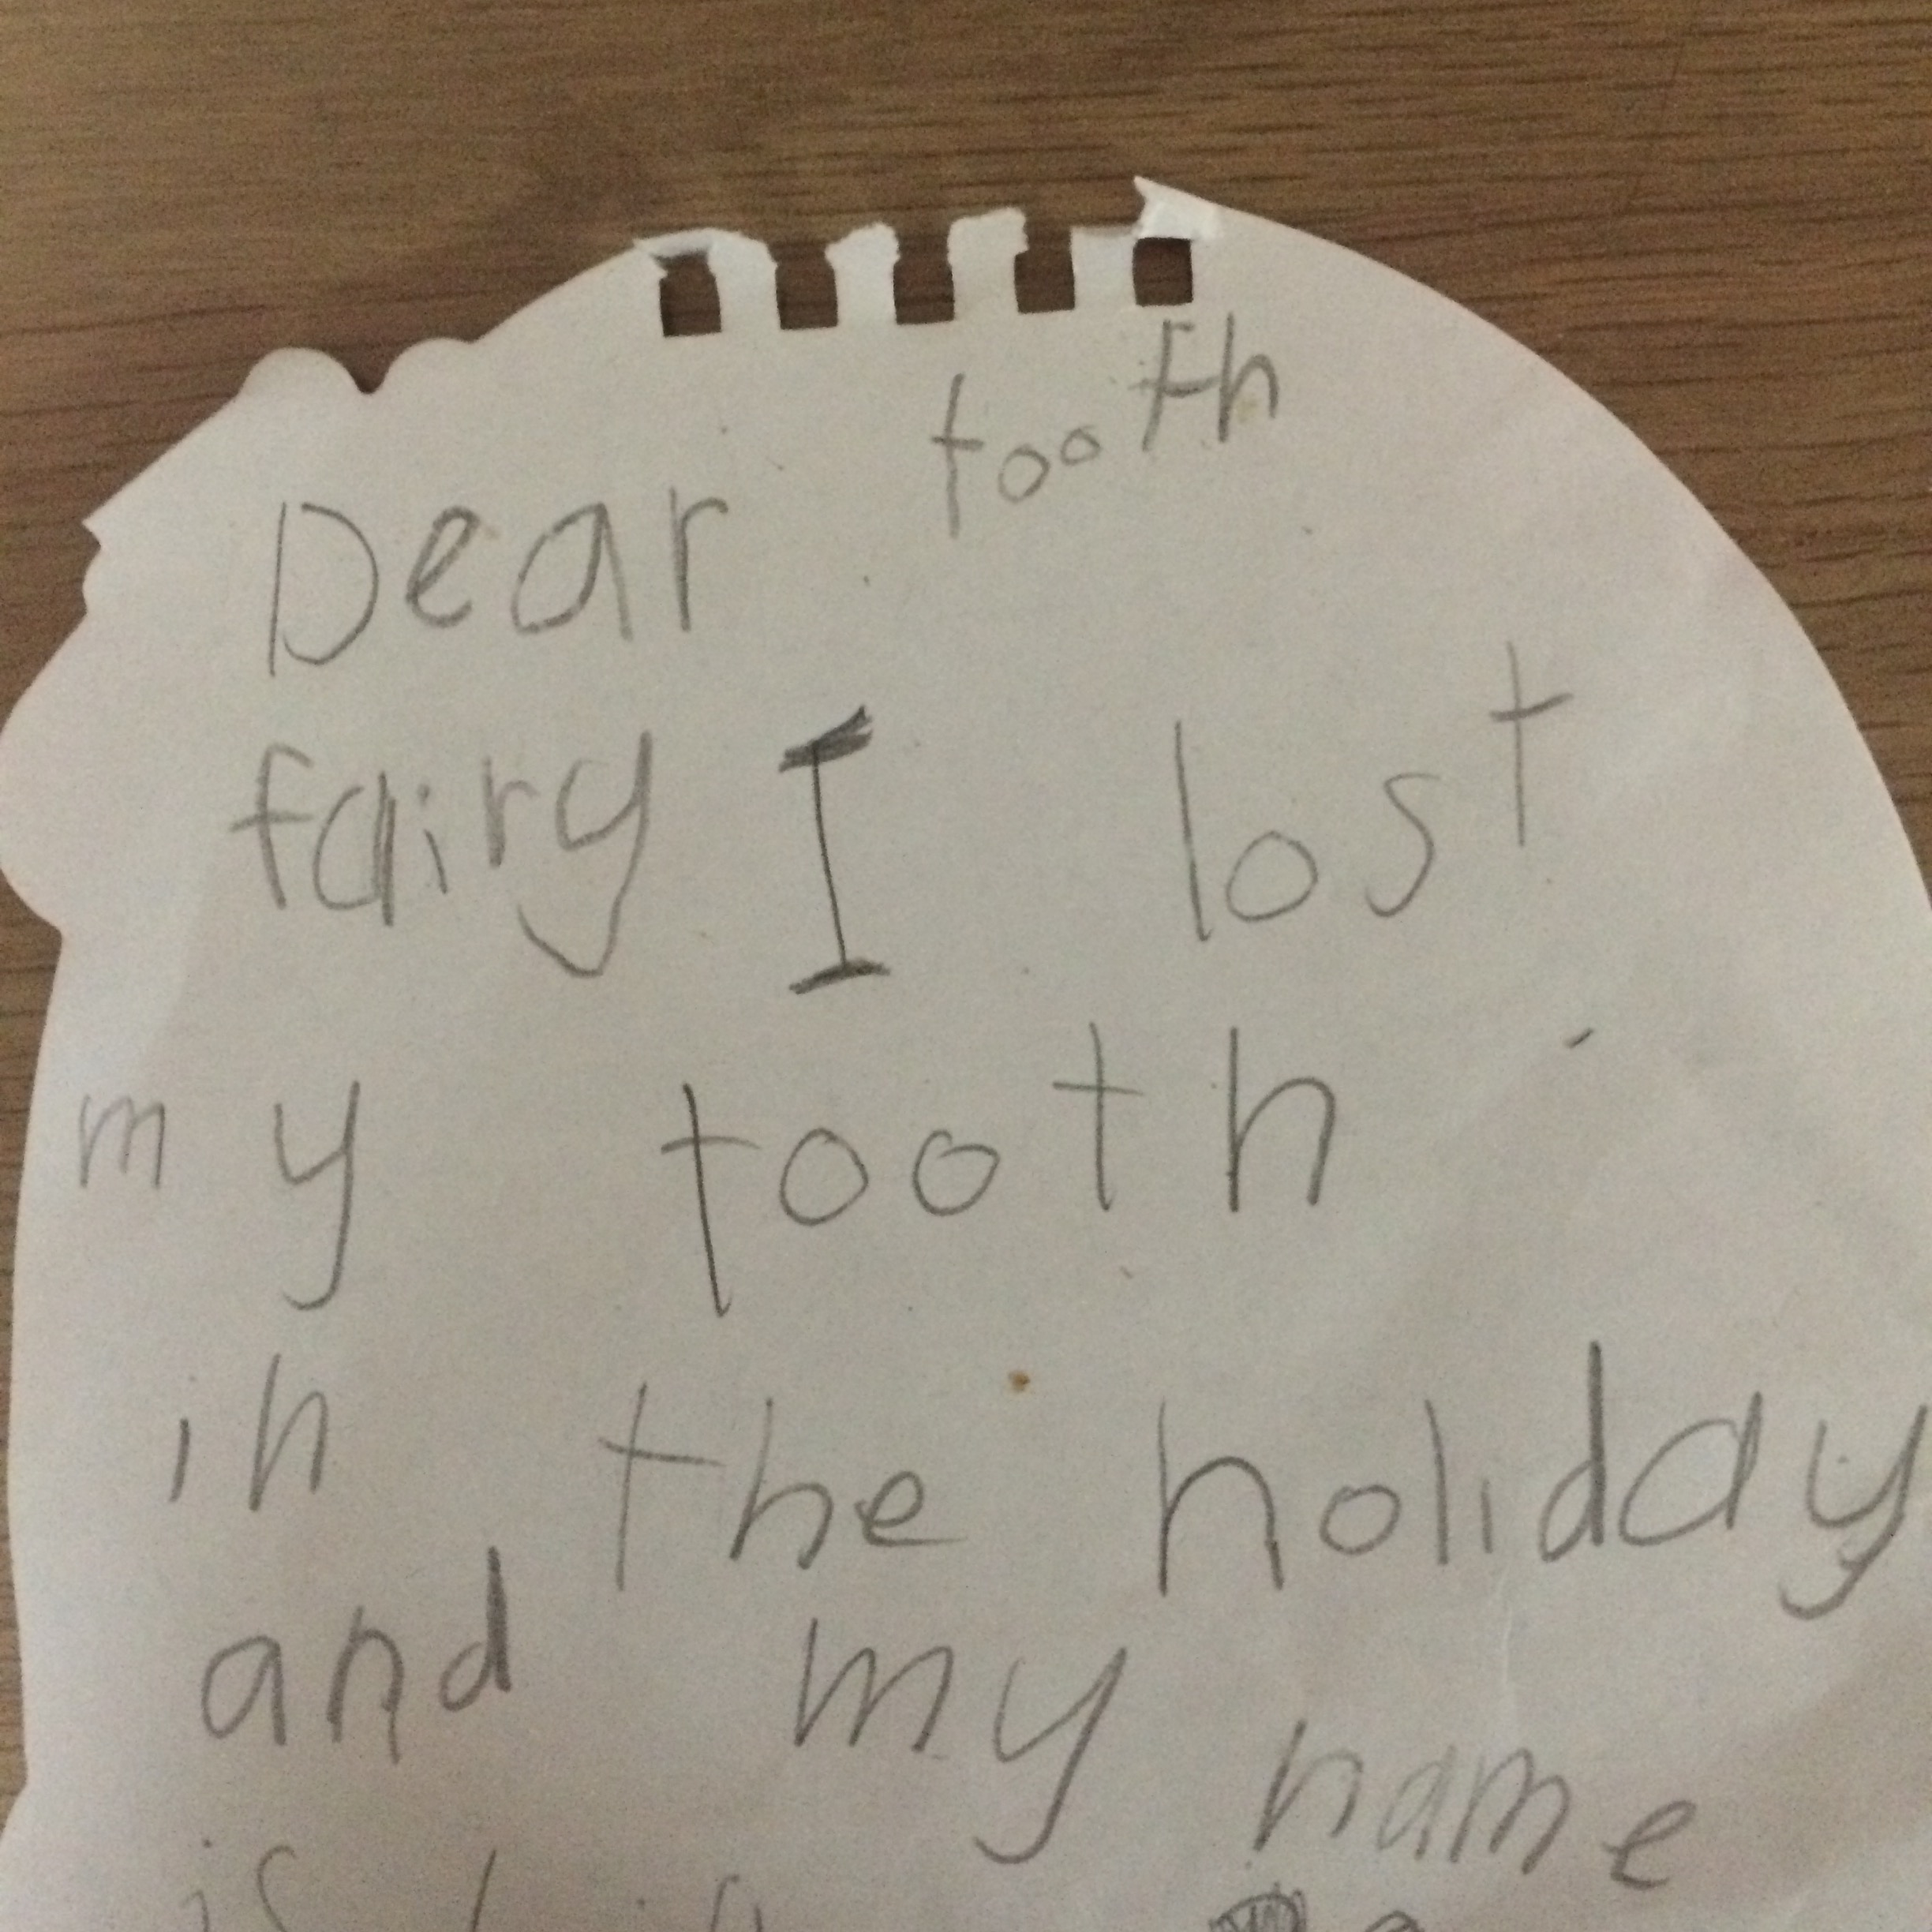 Dear tooth
fairy I lost
my tooth
in the holiday
and my name
is